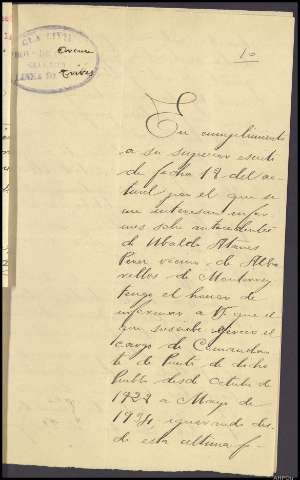 10
En cumplimiento
a su superior escrito
de fecha 12 del ac-
tual por el que se
me interesan infor
mes sobre antecedentes
de Ubaldo
Perez vecino de Alba
rellos de Monterrey
tengo el honor de
informar a V. que el
que suscribe ejerció el
cargo de Comandan
te de Puesto de dicho
Pueblo desde octubre de
1928 a Mayo de
1934, ignorando des-
de esta ultima fe-